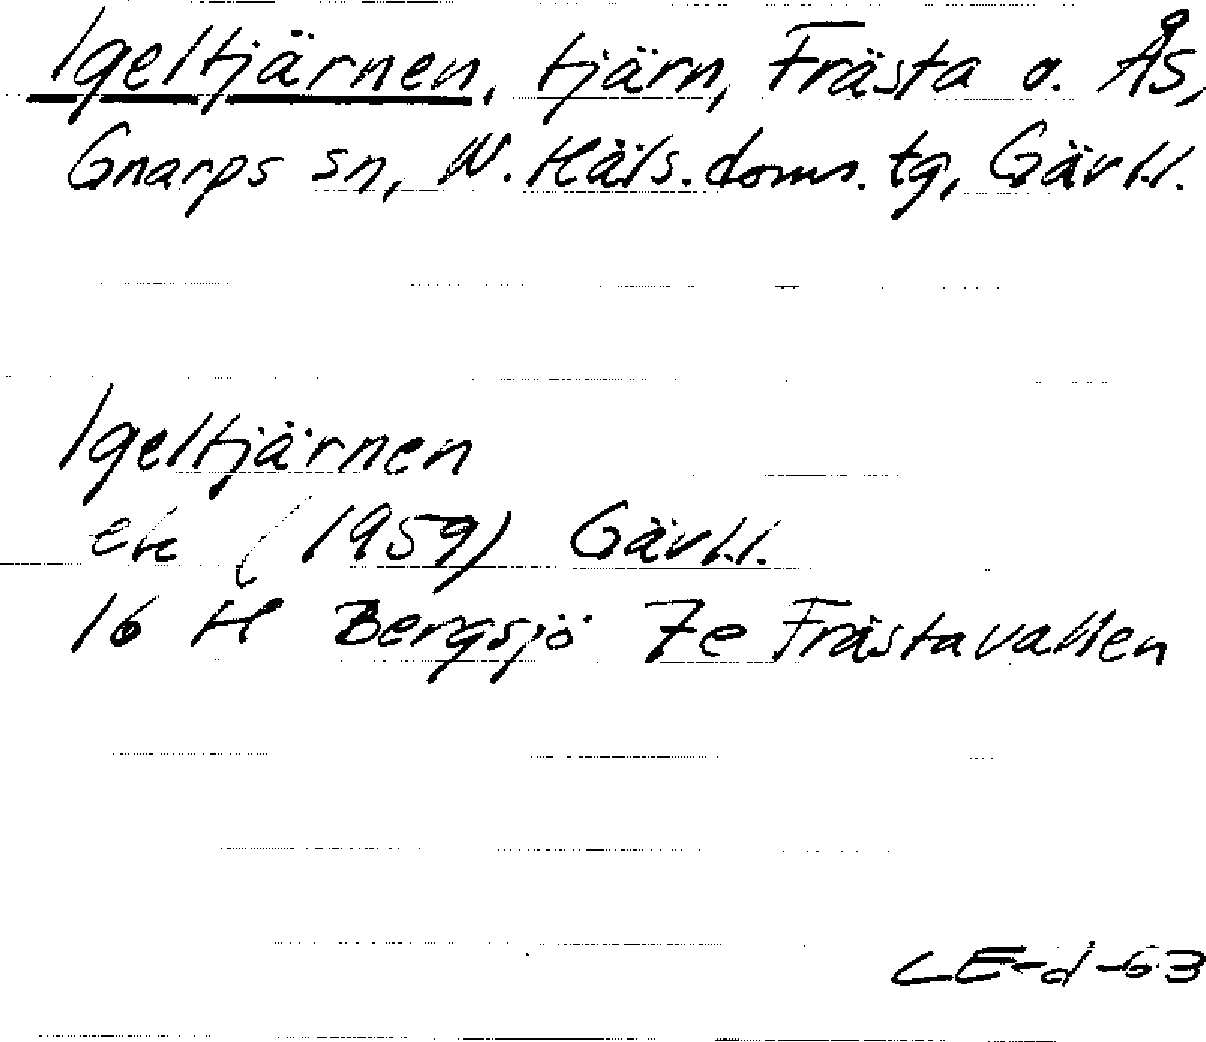 Igeltjärnen, tjärn, Frästa o. Ås,
Gnarps sn, N. Häls. doms. tg, Gävl.l.
Igeltjärnen
ek (1959) Gävl.l.
16 H Bergsjö 7e Frästavallen
LE-d-63